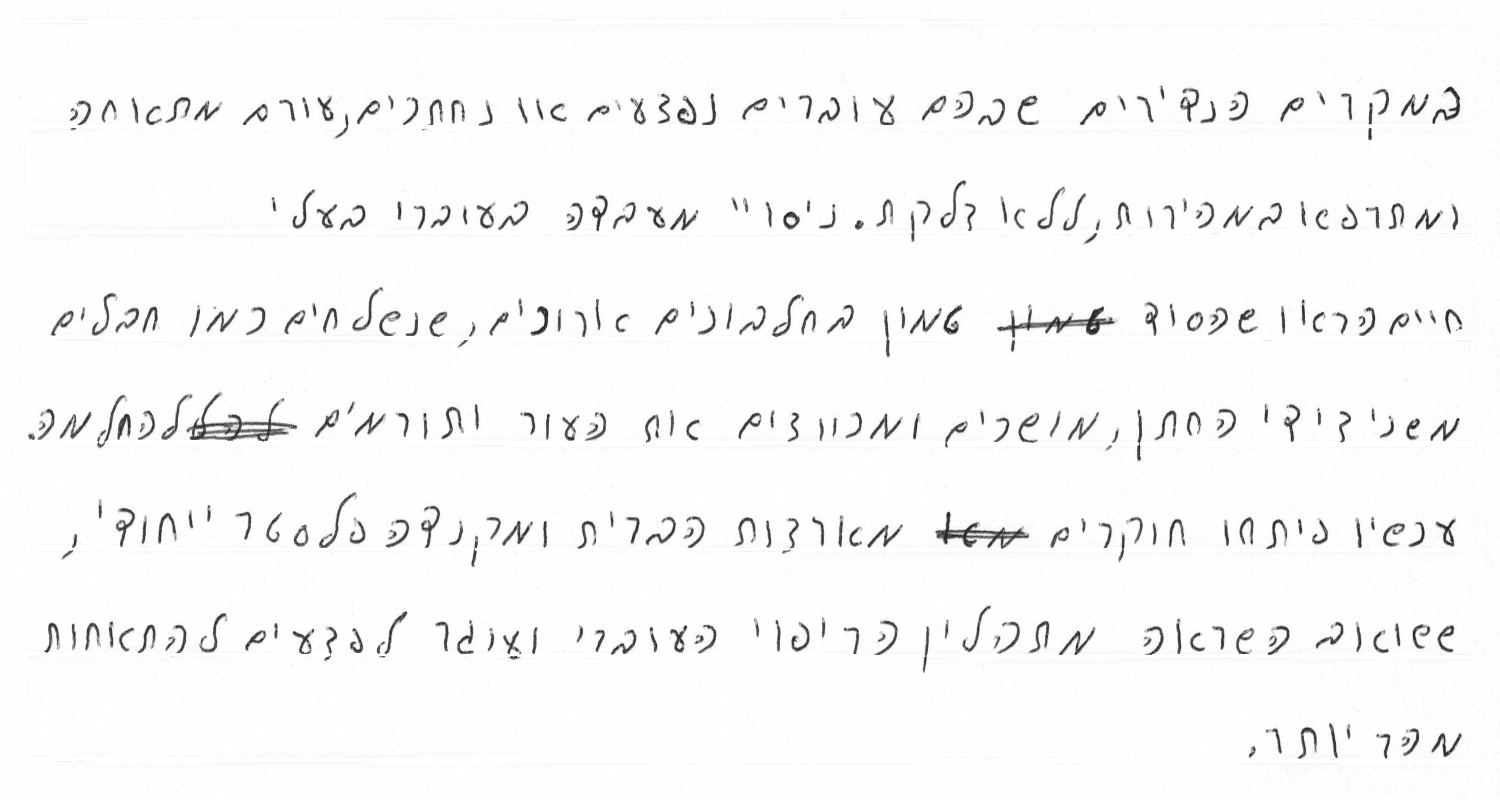 במקרים הנדירים שבהם עוברים נפצעים או נחתכים, עורם מתאחה
ומתרפא במהירות, ללא דלקת. ניסויי מעבדה בעוברי בעלי
חיים הראו שהסוד טמון בחלבונים ארוכים, שנשלחים כמו חבלים
משני צידי החתך, מושכים ומכווצים את העור ותורמים להחלמה.
עכשיו פיתחו חוקרים מארצות הברית ומקנדה פלסטר ייחודי,
ששואב השראה מתהליך הריפוי העוברי ועוזר לפצעים להתאחות
מהר יותר.